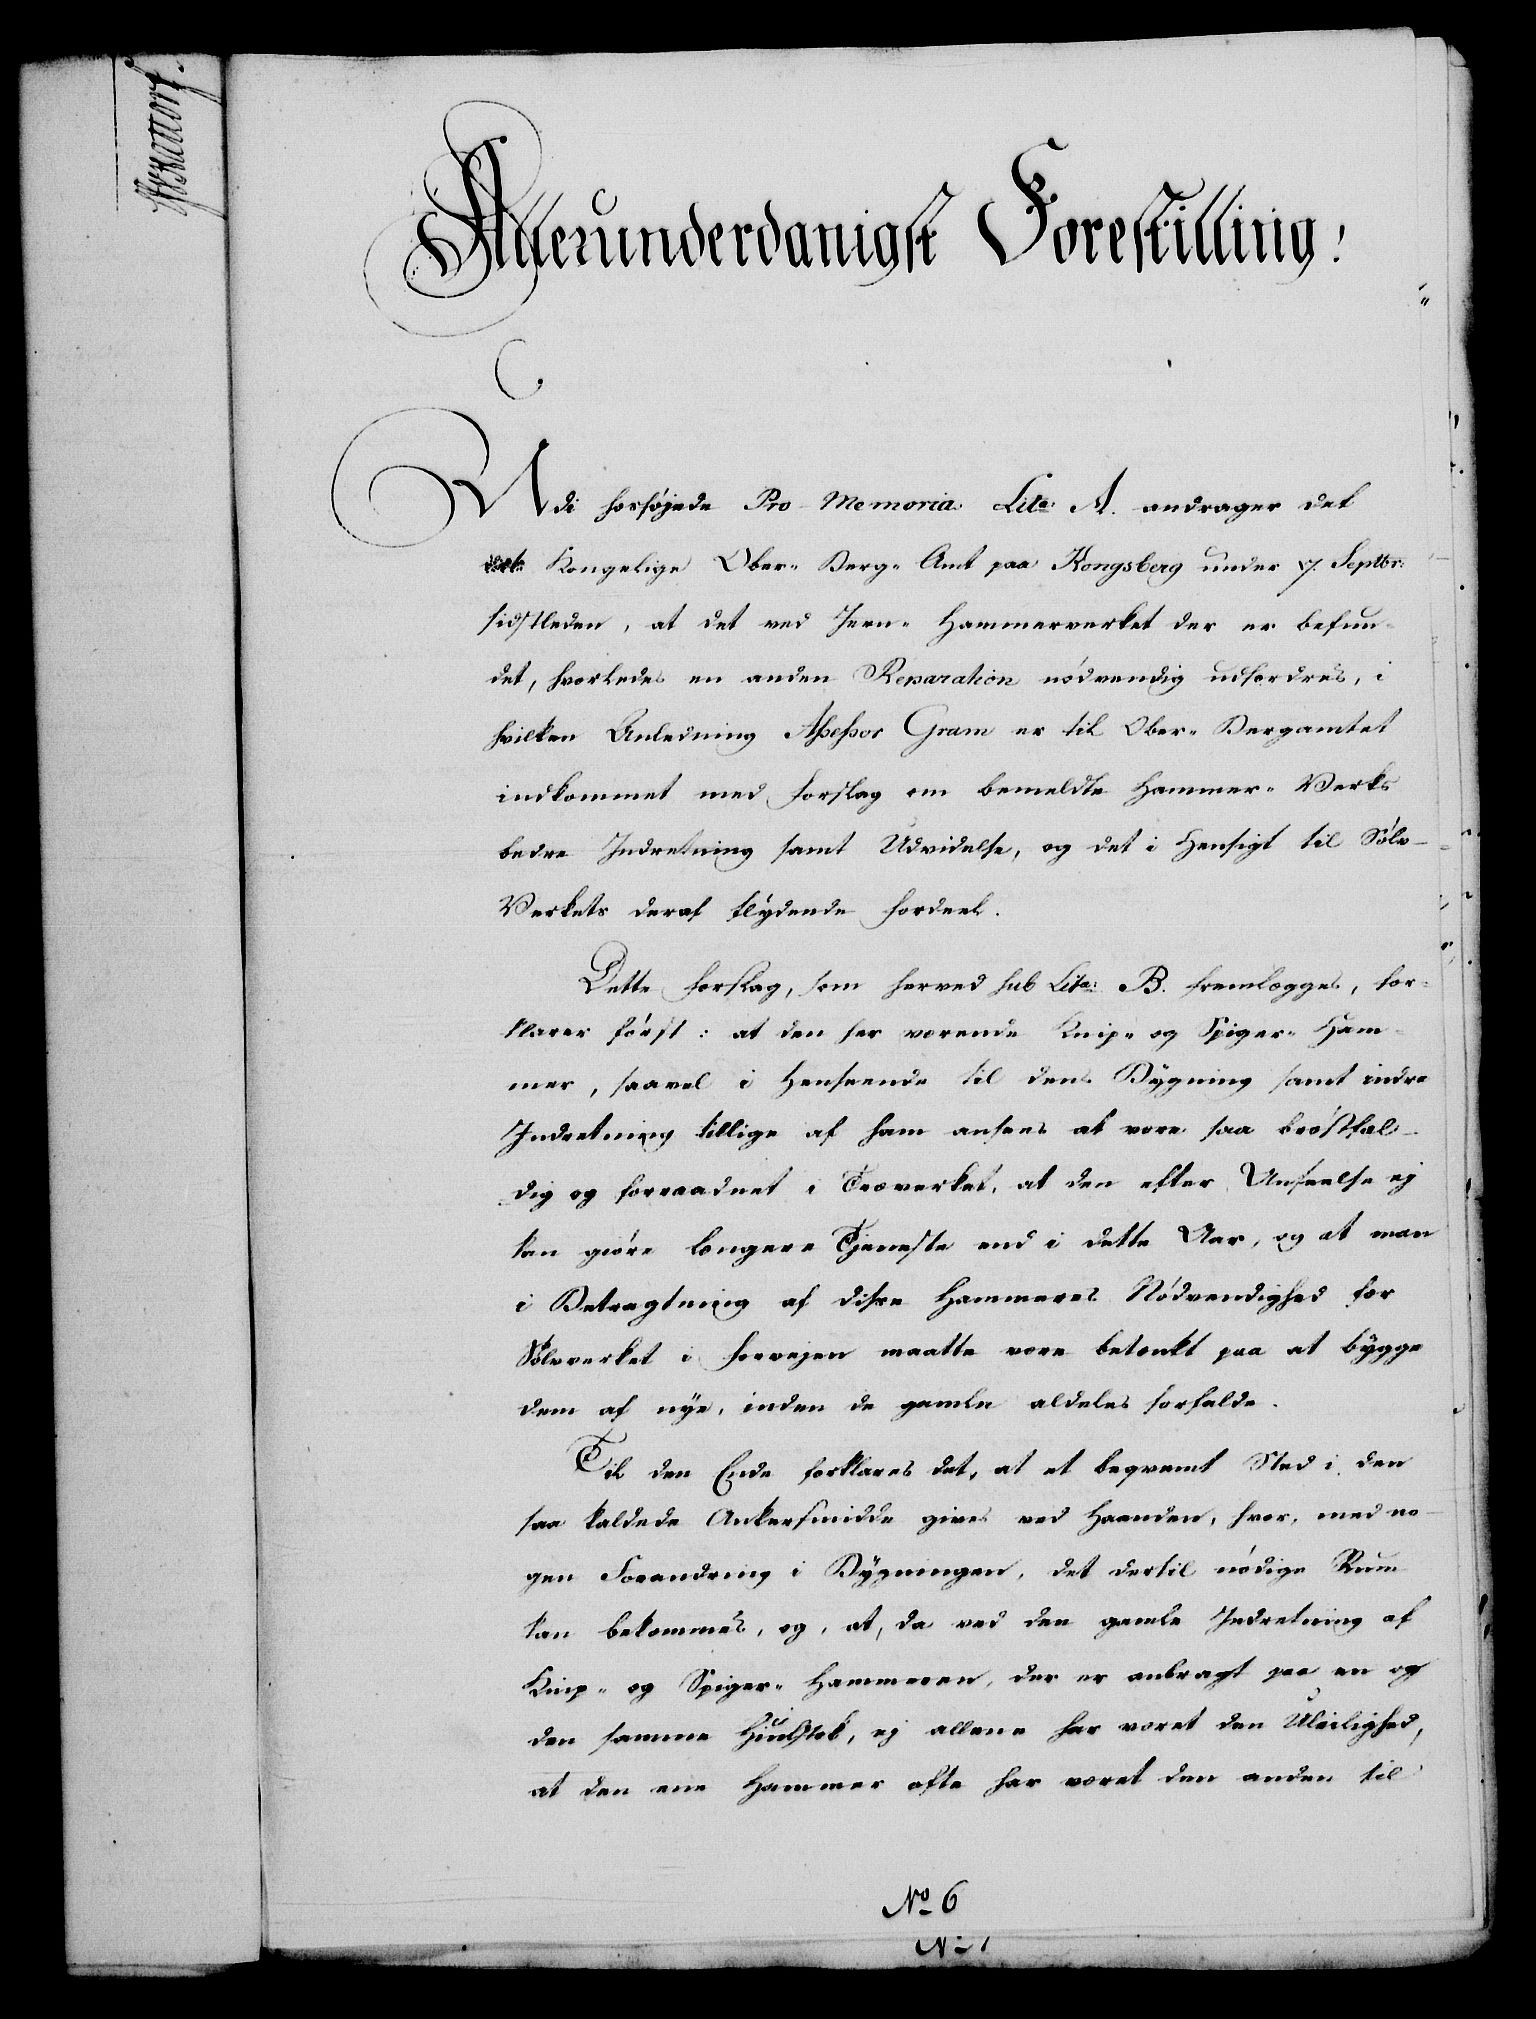 Allerunderdanigst Forestilling!
Udi hosføjede Pro Memoria Lita: A. andrager det
Kongelige Ober- Berg- Amt paa Kongsberg under 7. Septbr:
sidstleden, at det ved Jern- Hammerverket der er befun-
det, hvorledes en anden Reparation nødvendig udfordres, i
hvilken Anledning Assessor Gram er til Ober- Bergamtet
indkommet med Forslag om bemeldte Hammer- Verks
bedre Indretning samt Udvidelse, og det i Hensigt til Sølv-
Verkets deraf flydende Fordeel.
Dette Forslag, som herved sub Lita: B. fremlægges, for-
klarer først: at den her værende Knip- og Spiger- Ham-
mer, saavel i Henseende til dens Bygning samt indre
Indretning tillige af ham ansees at være saa brøstfæl-
dig og forraadnet i Træverket, at den efter Anseelse ej
kan giøre længere Tjeneste end i dette Aar, og at man
i Betragtning af disse Hammeres Nødvendighed for
Sølvverket i Forvejen maatte være betænkt paa at bygge
dem af nye, inden de gamle aldeles forfalde.
Til den Ende forklares det, at et beqvemt Sted i den
saa kaldede Ankersmidde gives ved Haanden, hvor, med no-
gen Forandring i Bygningen, det dertil nødige Rum
kan bekommes, og, at, da ved den gamle Indretning af
Knip- og Spiger- Hammeren, der er anbragt paa en og
den samme Hiulstok, ej allene har været den Uleilighed,
at den ene Hammer ofte har været den anden til
No 6
No 1